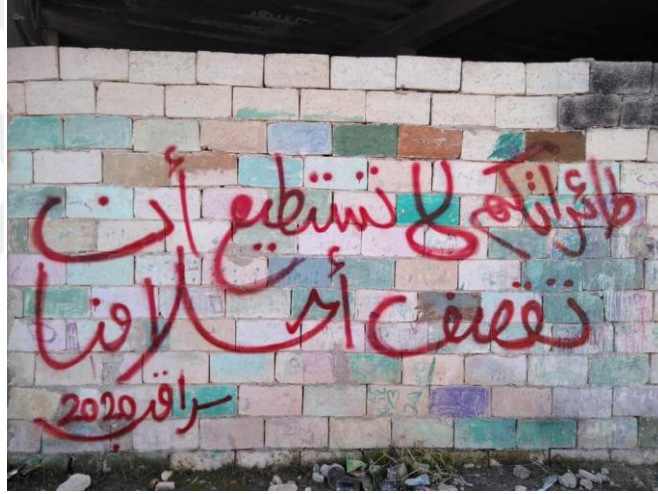 طائراتكم لا تستطيع أن
تقصف أحلامنا
سراقب 2020